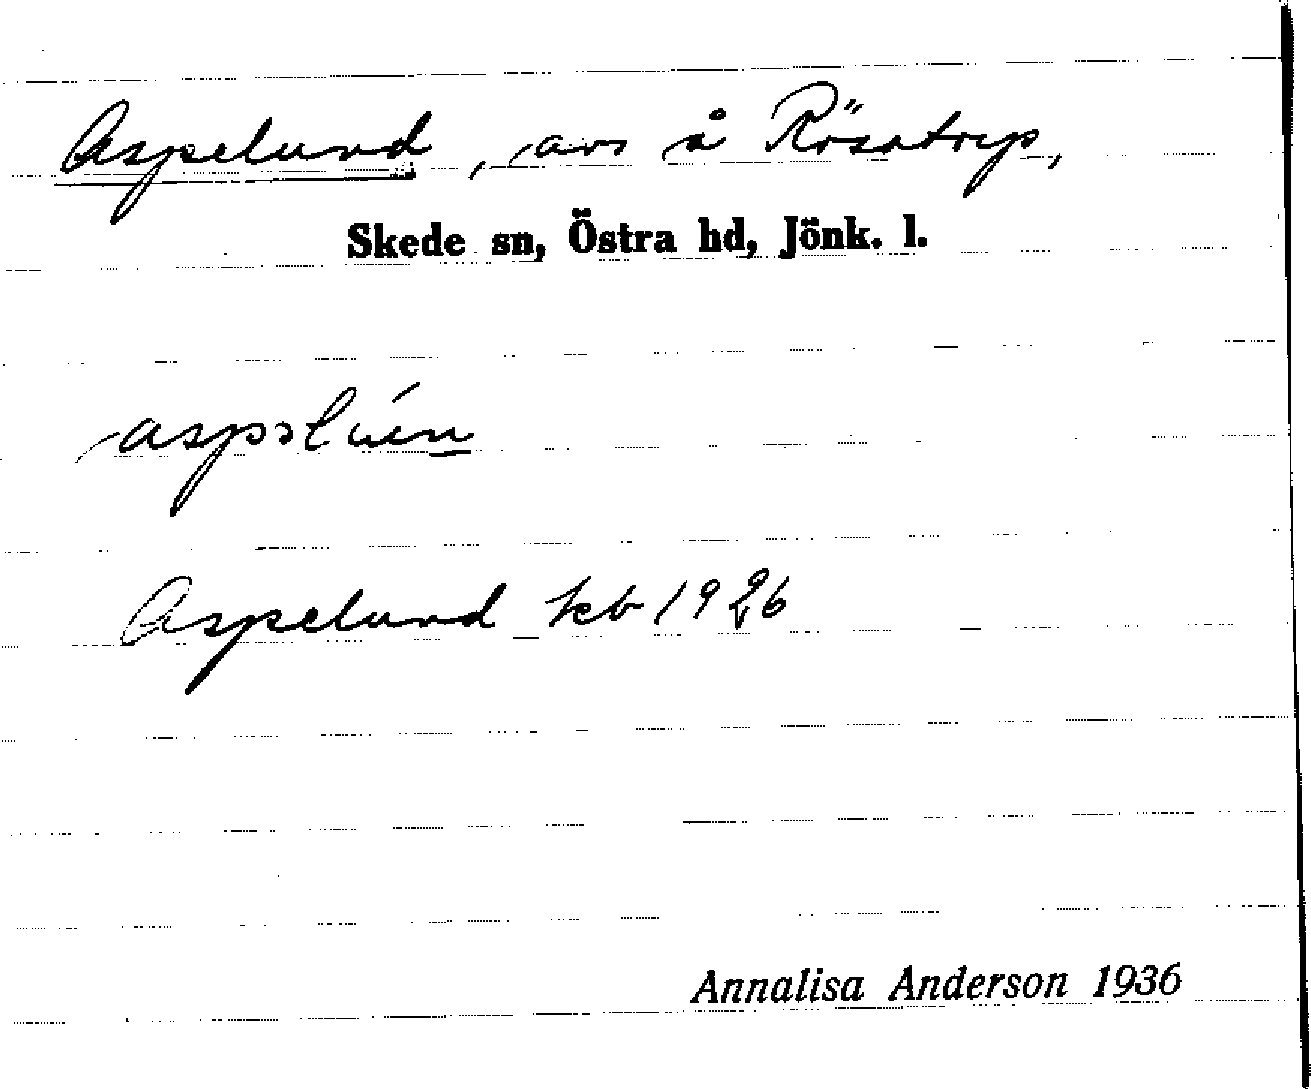 Aspelund, avs å Rösatorp,
Skede sn, Östra hd, Jönk. l.
Aspelund kb 1926
Annalisa Anderson 1936